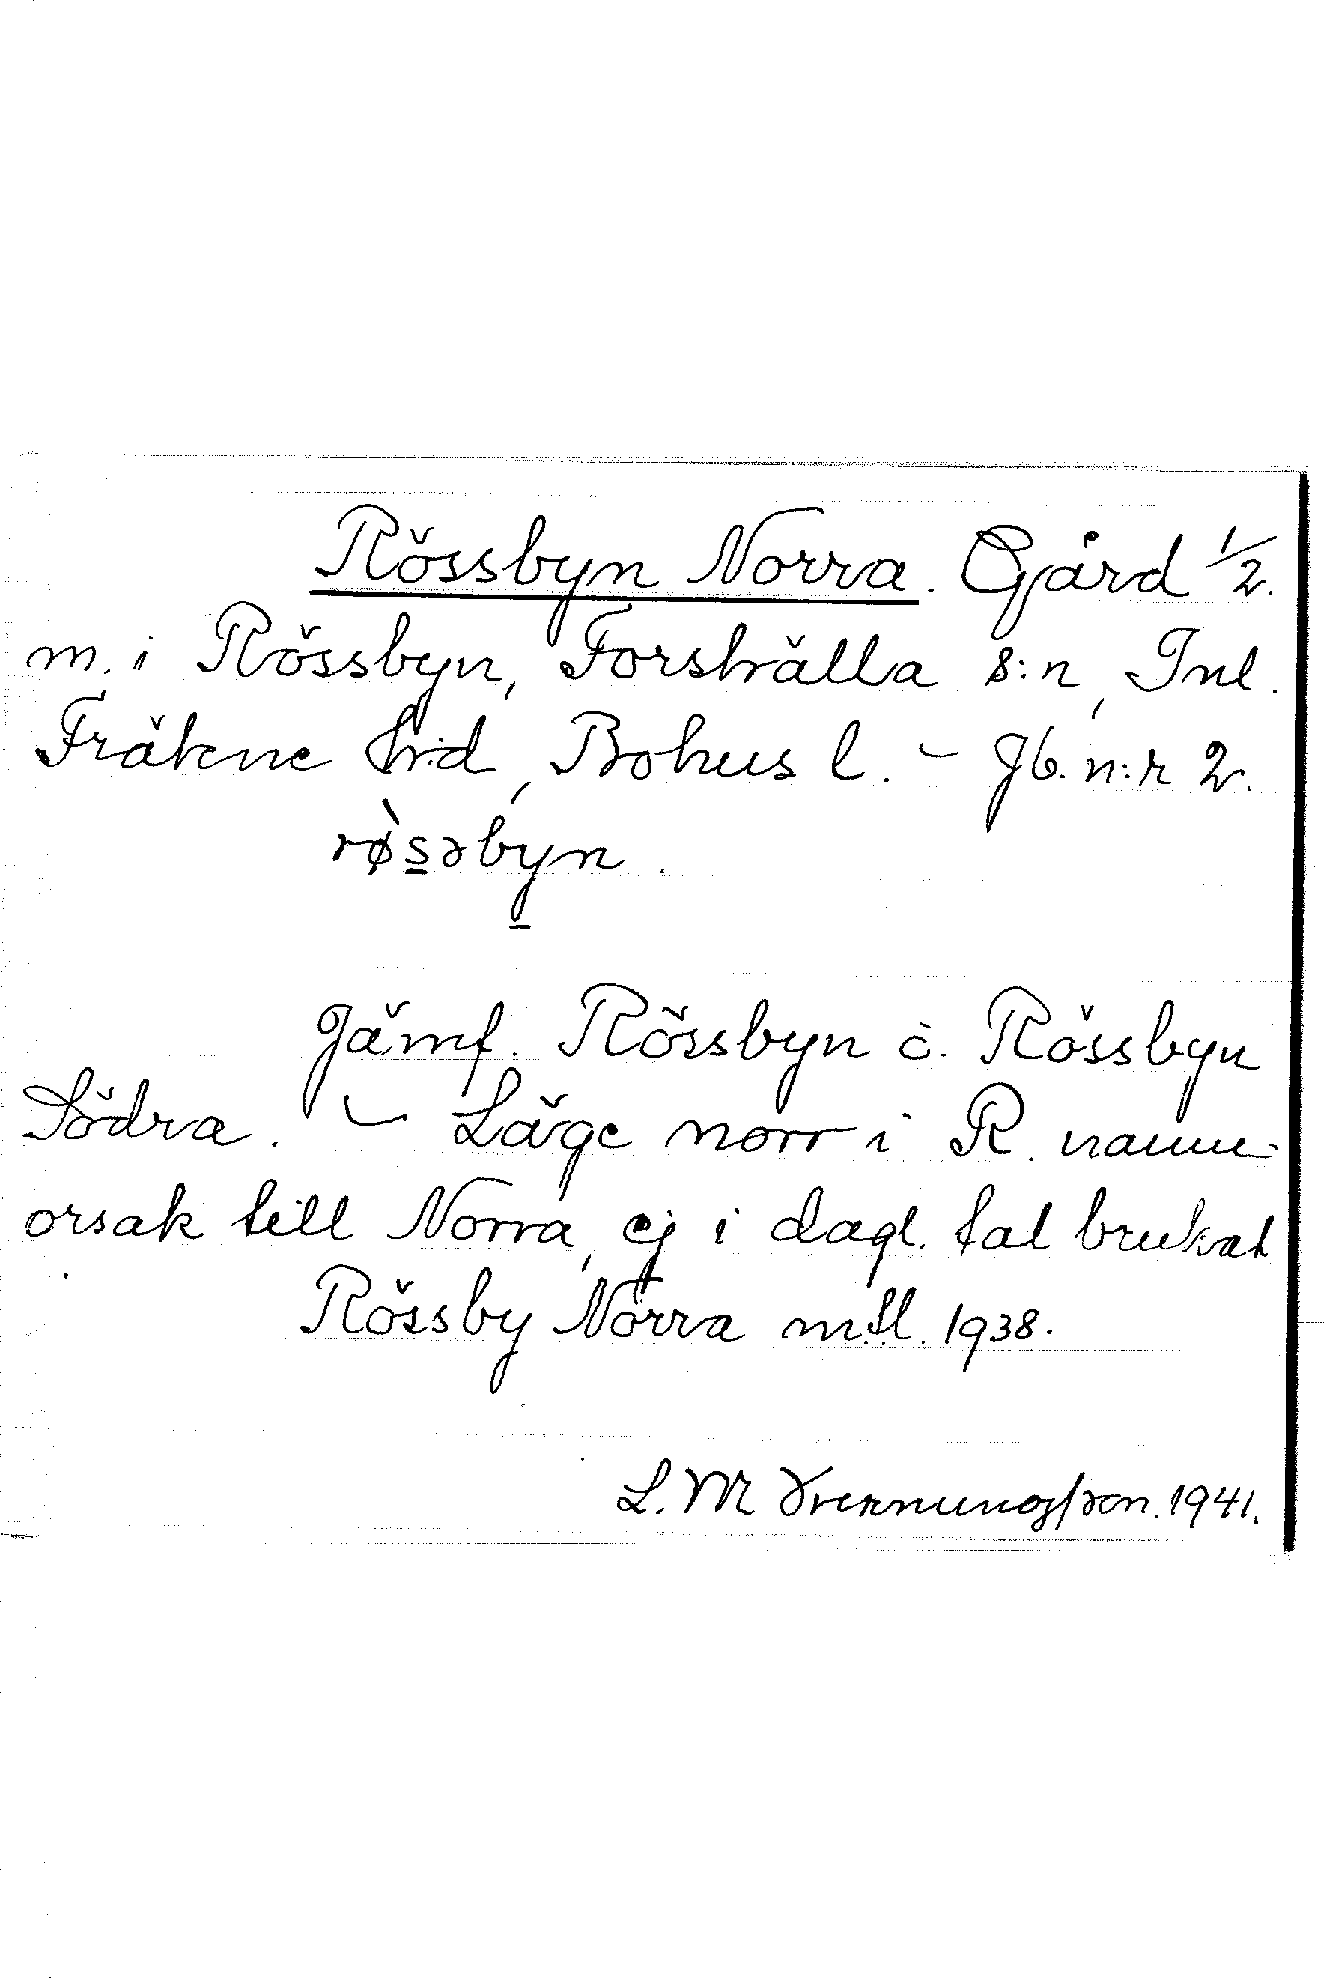 Rössbyn Norra. Gård 1/2.
m. i Rössbyn, Forshälla s:n, Inl.
Fräkne h:d, Bohus l. - Jb. n:r 2.
rø̀s̲əbyn.
Jämf. Rössbyn o. Rössbyn
Södra. - Läge norr i R. namn-
orsak till Norra, ej i dagl. tal brukat
Rössby Norra m.fl. 1938.
L. M. 1941.